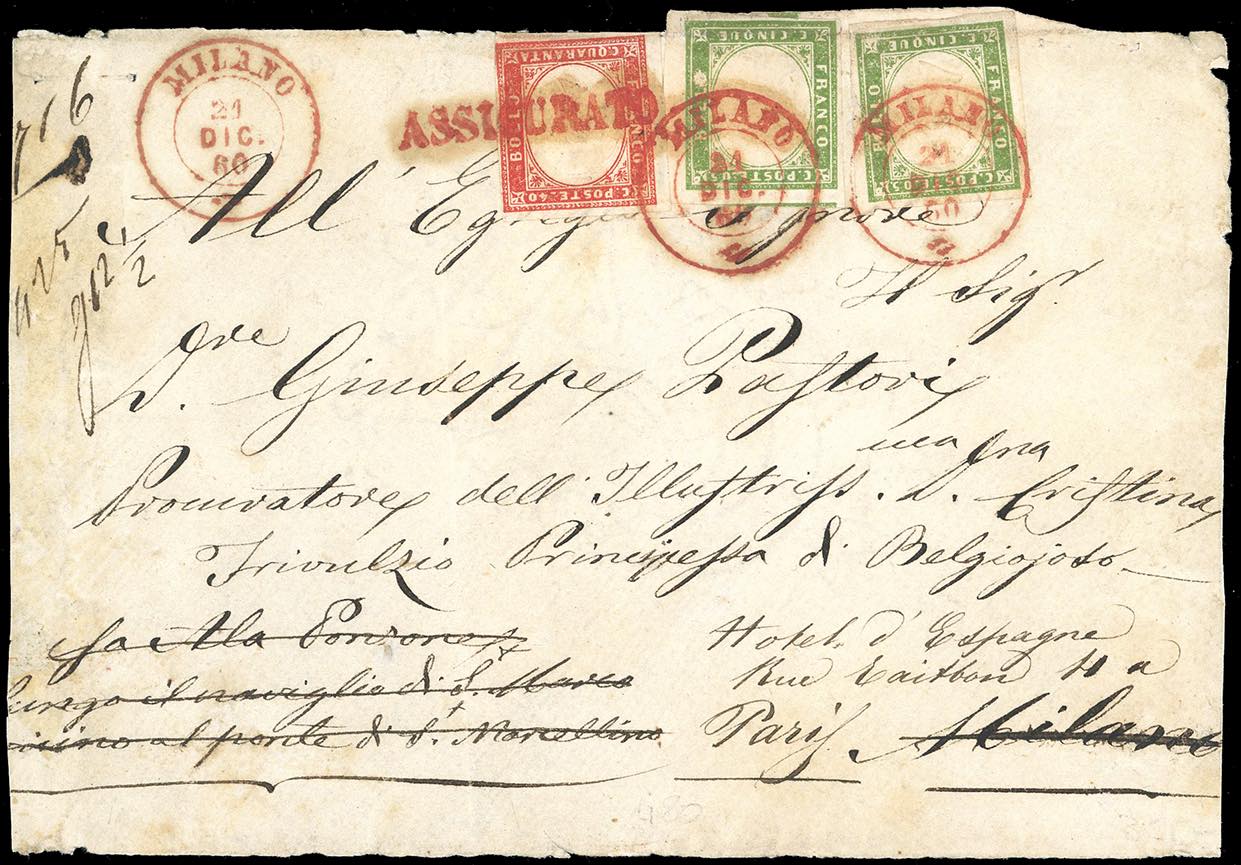 MILANO
21
DIC.
60
ASSICURATO
C. QUARANTA
BOLLO
FRANCO
C. POSTE 40
C. CINQUE
FRANCO
C. POSTE 05
MILANO
21
DIC.
60
C. CINQUE
BOLLO
FRANCO
C. POSTE 05
MILANO
21
DIC
60
716
All' Egregio Signore
Il Sigr.
D. Giuseppe Pastori
Procuratore dell' Illustriss.ma D.na Cristina
Trivulzio Principessa di Belgiojoso
alla Ponzone
lungo il naviglio di S. Marco
vicino al ponte di S. Marcellino
Hotel d'Espagne
Rue Taitbou 4 a
Paris. Milano
480